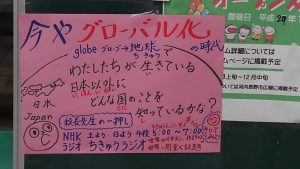 今や グローバル化 の時代
globe グローブ→地球
ちきゅう
わたしたちが 生きている
い
日本以外に
にほんいがい
どんな国のことを
くに
知っているかな?
し
日本
Japan
校長先生の一押し
NHK 土よう・日よう 午後 5:00〜7:00
ラジオ ちきゅうラジオ
開催日 平成
ム詳細については
ムページに掲載予定
上旬〜12月中旬